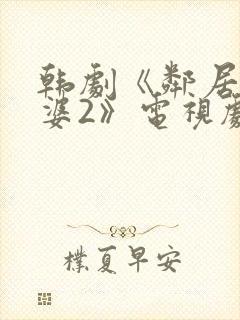 韩劇《鄰居
婆2》電視劇
樸夏早安